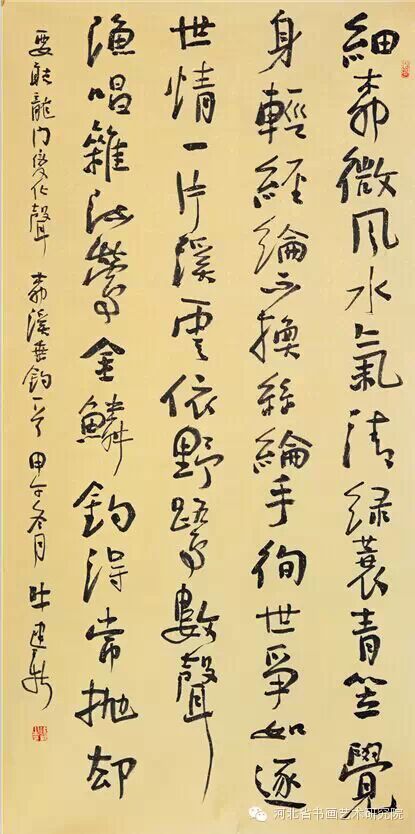 細雨微風水氣清綠蓑青笠覺
身輕經綸不換絲綸手徇世爭如逐
世情一片溪雲依野鷺數聲
漁唱雜流鶯金鱗釣得常拋却
要龍門變化聲 雨溪垂釣一首 甲午冬月
河北省书画艺术研究院